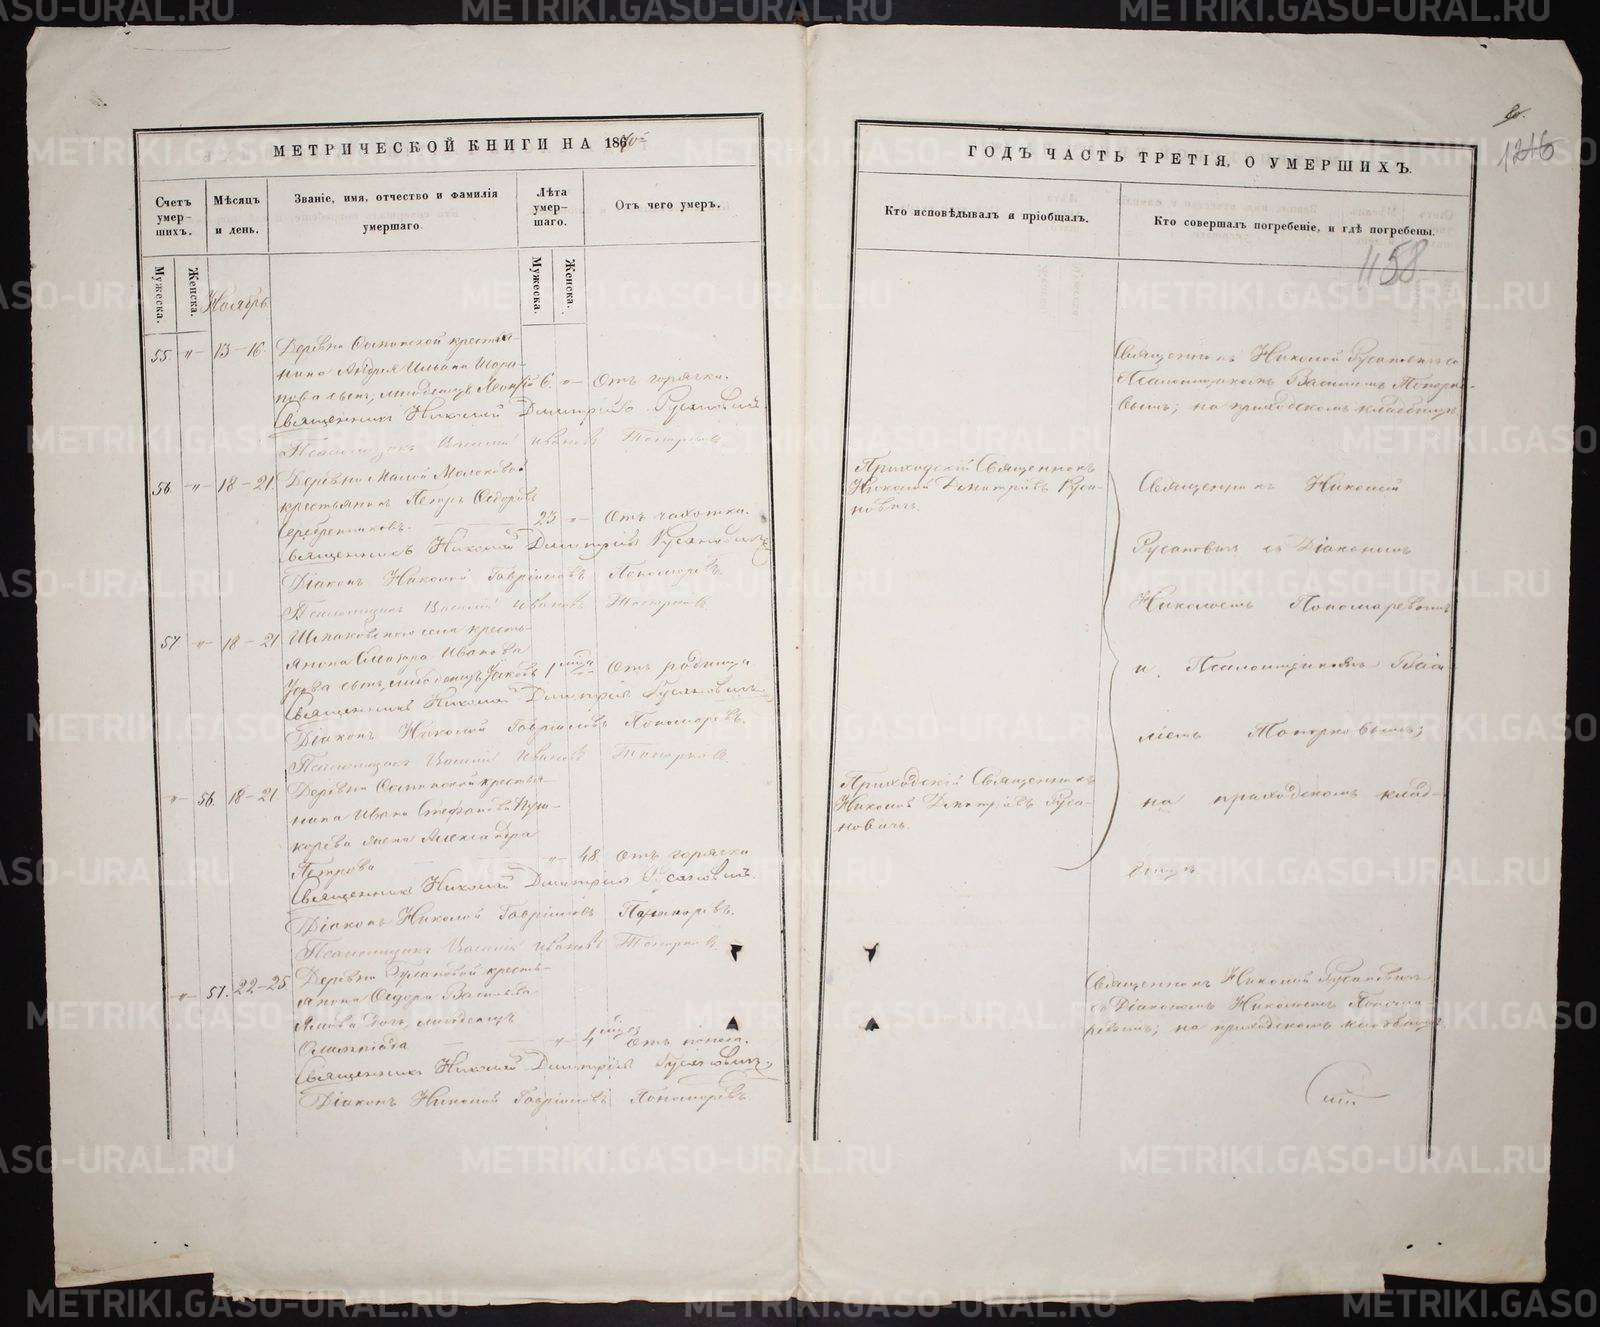 МЕТРИЧЕСКОЙ КНИГИ НА 1870й
Счетъ умер-шихъ.
Мѣсяцъ и день.
Званіе, имя, отчество и фамилія умершаго.
Лѣта умер-шаго.
Отъ чего умеръ.
Мужеска.
Женска.
Мужеска.
Женска.
Ноябрь
55. " 13-16. Деревни крестья-
нина Андрея Ильина
сынъ, младенецъ 6. " Отъ горячки.
Священникъ Николай Дмитріевъ Русановичъ.
Псаломщикъ Василій Ивановъ Топорковъ
56. " 18-21. Деревни Малой Молоковой
крестьянинъ Петръ Ѳедоровъ
Серебренниковъ. 23. " Отъ чахотки.
Священникъ Николай Дмитріевъ Русановичъ
Діаконъ Николай Гавріиловъ Пономаревъ.
Псаломщикъ Василій Ивановъ Топорковъ
57. " 18-21. Шпаковскаго села кресть-
янина Иванова
сынъ, младенецъ Яковъ 1 мѣс. Отъ родимца
Священникъ Николай Дмитріевъ Русановичъ
Діаконъ Николай Гавріиловъ Пономаревъ.
Псаломщикъ Василій Ивановъ Топорковъ
" 56. 18-21. Деревни крестья-
нина Ивана Стефанова
жена Александра
Петрова " 48. Отъ горячки
Священникъ Николай Дмитріевъ Русановичъ.
Діаконъ Николай Гавріиловъ Пономаревъ.
Псаломщикъ Василій Ивановъ Топорковъ
" 57. 22-25. Деревни кресть-
янина Ѳедора Васильева
дочь, младенецъ
Олимпіада " Отъ поноса.
Священникъ Николай Дмитріевъ Русановичъ.
Діаконъ Николай Гавріиловъ Пономаревъ.
1216
ГОДЪ ЧАСТЬ ТРЕТІЯ, О УМЕРШИХЪ.
Кто исповѣдывалъ и пріобщалъ.
Кто совершалъ погребеніе, и гдѣ погребены.
1158
Священникъ Николай Русановичъ со
Псаломщикомъ Василіемъ Топорко-
вымъ; на приходскомъ кладбищѣ
Приходскій Священникъ
Николай Дмитріевъ Руса-
новичъ.
Священникъ Николай
Русановичъ съ Діакономъ
Николаемъ Пономаревымъ
и Псаломщикомъ Васи-
ліемъ Топорковымъ;
на приходскомъ клад-
бищѣ.
Приходскій Священникъ
Николай Дмитріевъ Руса-
новичъ.
Священникъ Николай Русановичъ
съ Діакономъ Николаемъ Понома-
ревымъ; на приходскомъ кладбищѣ
METRIKI.GASO-URAL.RU